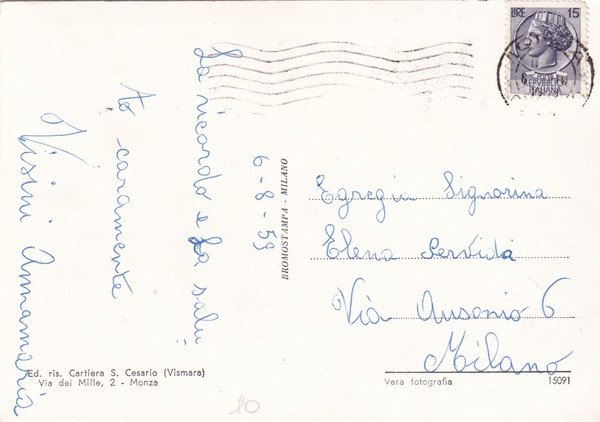 LIRE 15
REPUBBLICA
ITALIANA
La ricordo e La salu=
to caramente
Visini Annamaria
6-8-59
BROMOSTAMPA - MILANO
Egregia Signorina
Elena Servida
Via Ausonio 6
Milano
Ed. ris. Cartiera S. Cesario (Vismara)
Via dei Mille, 2 - Monza
Vera fotografia
15091
10